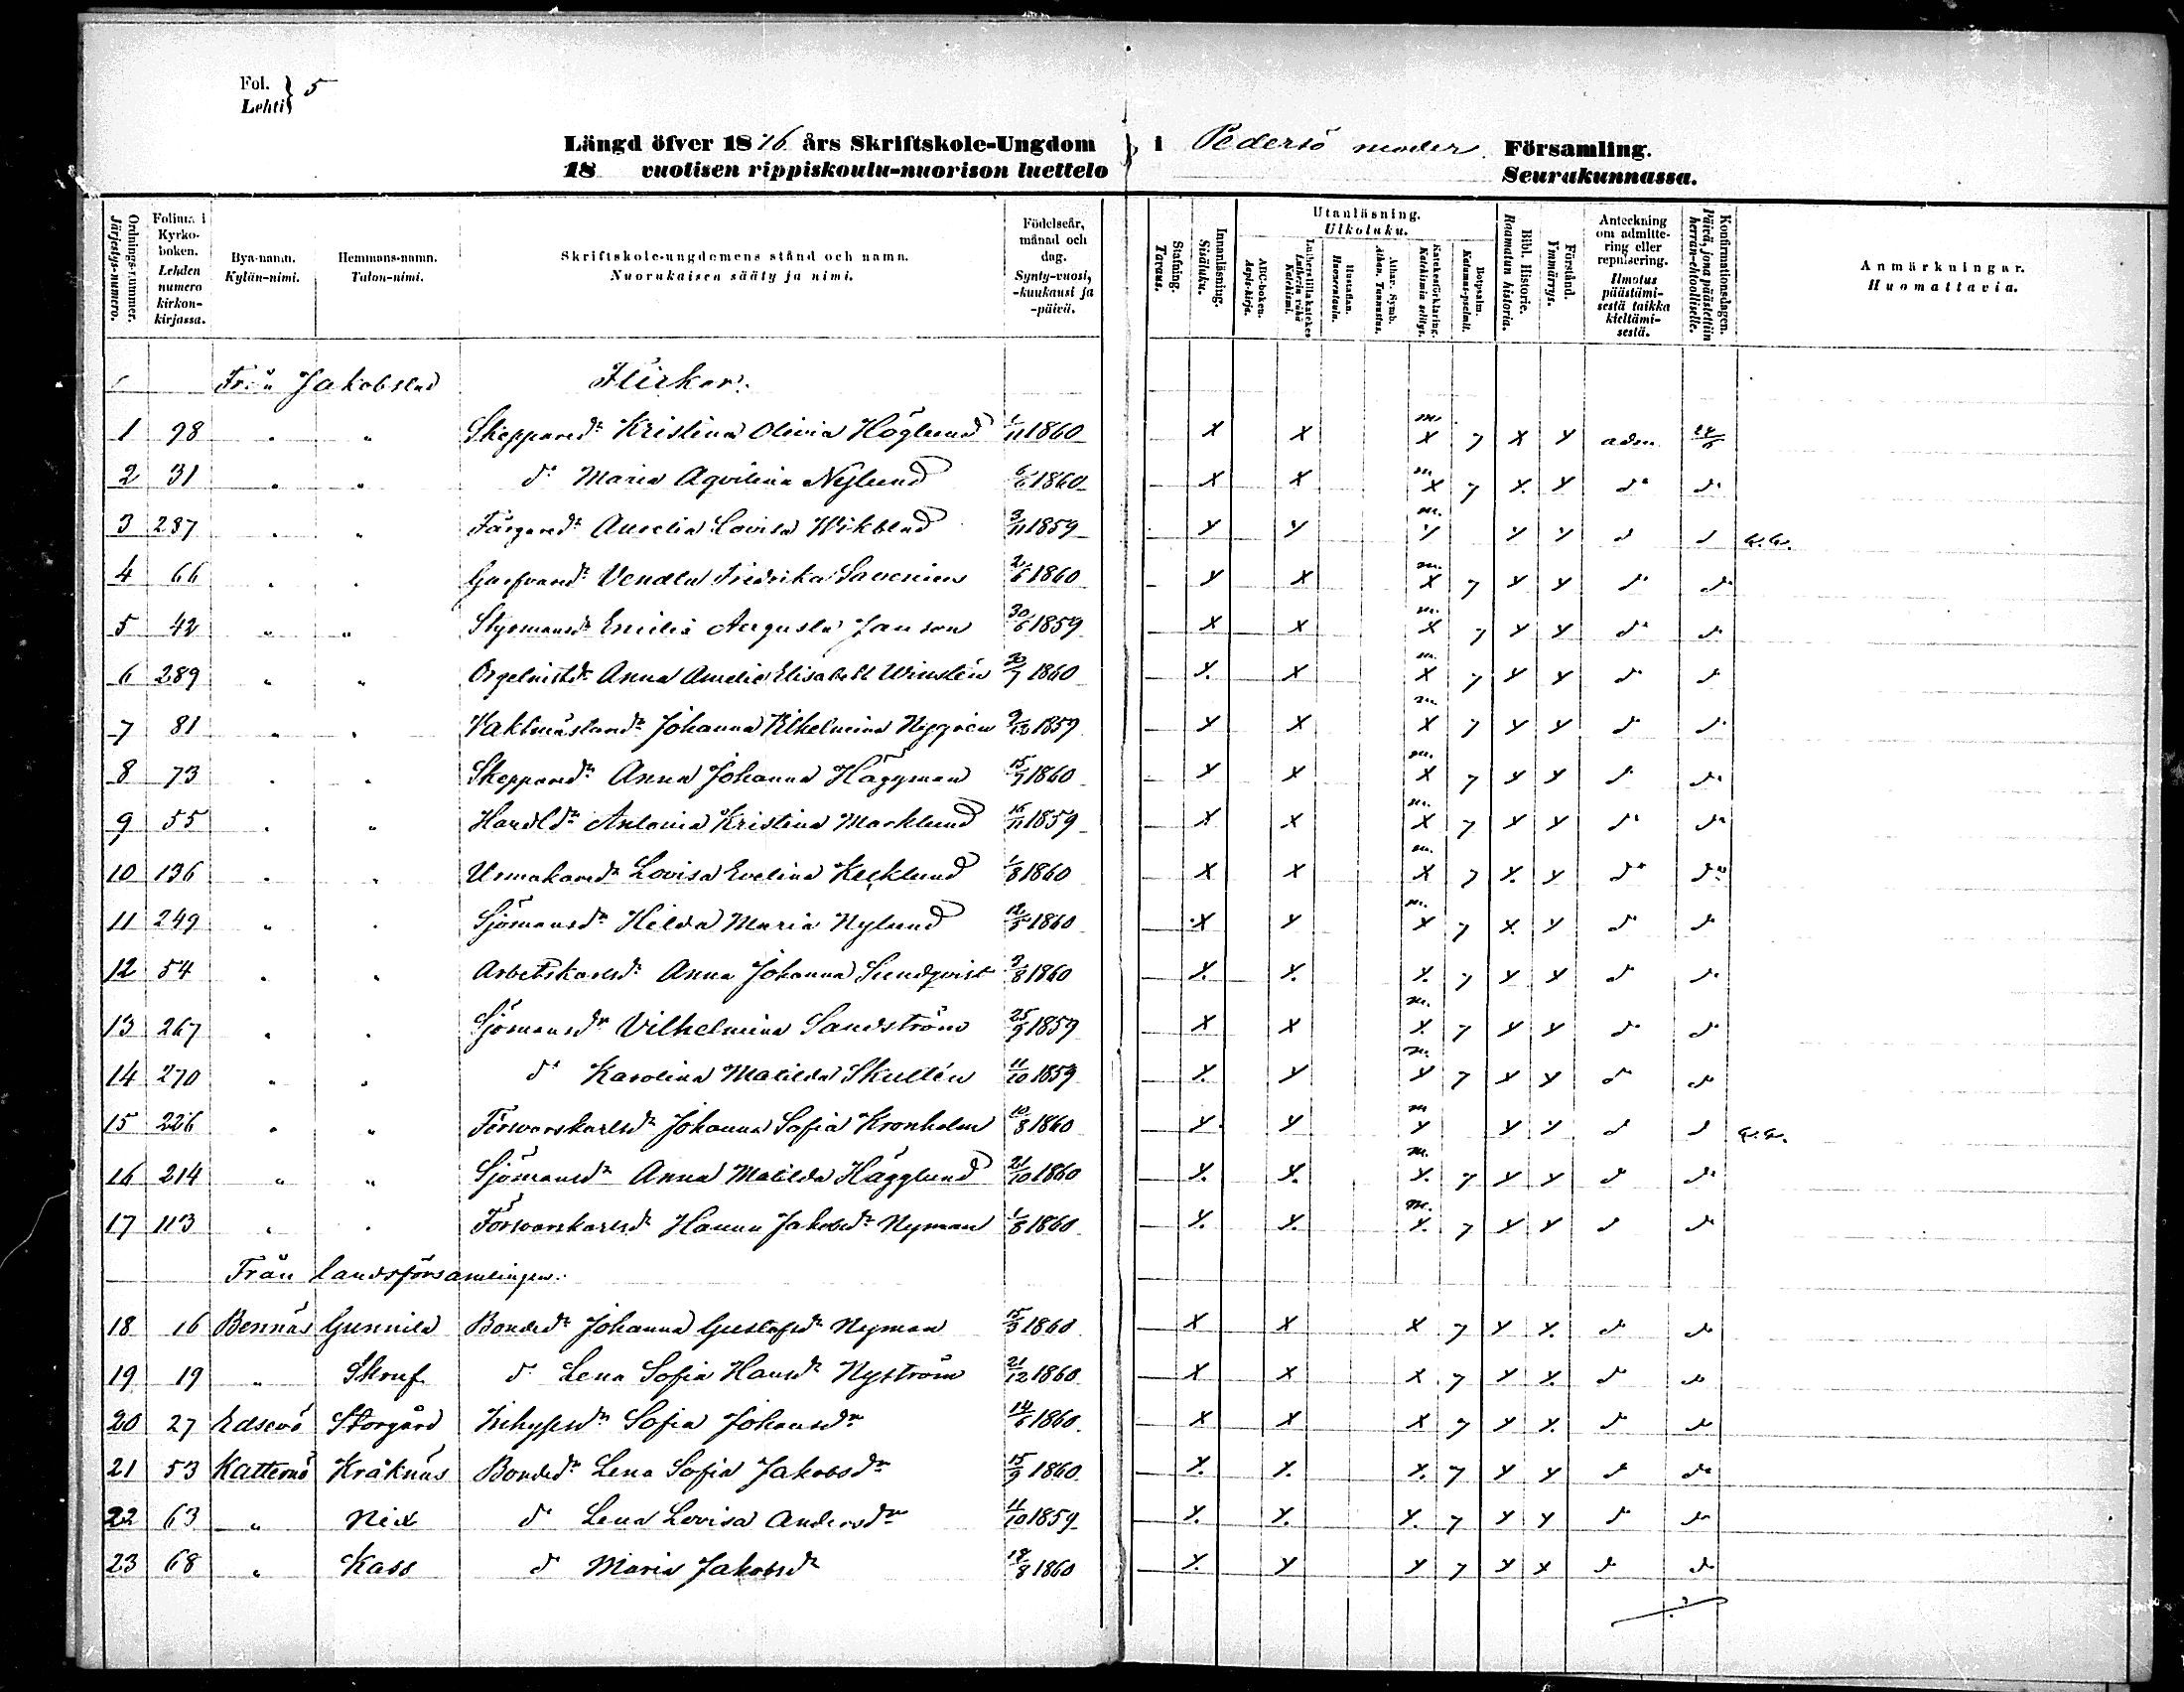 Fol. Lehti } 5
Längd öfver 1876 års Skriftskole-Ungdom i Pedersö moder Församling.
18 vuotisen rippiskoulu-nuorison luettelo Seurakunnassa.
Ordnings-nummer. Järjestys-numero.
Folium i Kyrko-boken. Lehden numero kirkon-kirjassa.
Bya-namn. Kylän-nimi.
Hemmans-namn. Talon-nimi.
Skriftskole-ungdomens stånd och namn. Nuorukaisen sääty ja nimi.
Födelseår, månad och dag. Synty-vuosi, -kuukausi ja -päivä.
Stafning. Taraus.
Innanläsning. Sisäluku.
Utanläsning. Ulkoluku.
ABC-boken. Aapis-kirja.
Luthers lilla katekes Lutherin vähä Katekismi.
Hustaflan. Huoneentaulu.
Athan. Symb. Athan. Tunnustus.
Katekesförklaring. Katekismin selitys.
Botpsalm. Katumus-psalmit.
Bibl. Historie. Raamatun historia.
Förstånd. Ymmärrys.
Anteckning om admitte-ring eller repulsering. Ilmotus päästämi-sestä taikka kieltämi-sestä.
Konfirmationsdagen. Päivä, jona päästettiin herran-ehtoolliselle.
Anmärkningar. Huomattavia.
Från Jakobstad Flickor.
1 98 " " Skeppared:r Kristina Olivia Höglund 1/11 1860 x x m. x 7 x y adm.
2 31 " " d:o Maria Aqvilina Nylund 6/6 1860 x x m. x 7 x y d:o d:o
3 287 " " Färgared:r Aurelia Lovisa Wikblad 3/11 1859 y y m. y y y d d
4 66 " " Garfvared:r Vendla Fredrika Savenius 2/6 1860 y x m. x 7 y y d:o d:o
5 42 " " Styrmansd:r Emilia Augusta Janson 30/6 1859 x x m. x 7 y y d:o d:o
6 289 " " Orgelnistd:r Anna Amelie Elisabeth Winstén 20/7 1860 y x m. x 7 y y d:o d:o
7 81 " " Vaktmästared:r Johanna Vilhelmina Nygrén 9/12 1859 y x m. x 7 y y d:o d:o
8 73 " " Skeppared:r Anna Johanna Häggman 15/9 1860 y x m. x 7 y y d:o d:o
9 55 " " Handl.d:r Antonia Kristina Marklund 16/11 1859 x x m. x 7 y y d:o d:o
10 136 " " Urmakared:r Lovisa Evelina Kecklund 1/8 1860 x x m. x 7 x y d:o d:o
11 249 " " Sjömansd:r Hilda Maria Nylund 12/5 1860 x y m. x 7 x y d:o d:o
12 54 " " Arbetskarlsd:r Anna Johanna Sundqvist 9/8 1860 y y y 7 y y d:o d:o
13 267 " " Sjömansd:r Vilhelmina Sandström 25/9 1859 x x m. x 7 y y d:o d:o
14 270 " " d:o Karolina Matilda Skultén 11/10 1859 y y m. y 7 y y d:o d:o
15 226 " " Försvarskarlsd:r Johanna Sofia Kronholm 10/8 1860 y y m y y y d d
16 214 " " Sjömansd:r Anna Matilda Hägglund 21/10 1860 y y m. y 7 y y d d:o
17 113 " " Försvarskarlsd:r Hanna Jakobsd:r Nyman 1/8 1860 y y m. y 7 y y d d:o
Från landsförsamlingen.
18 16 Bennäs Gunnila Bonded:r Johanna Gustafsd:r Nyman 15/3 1860 x x x 7 y y d:o d:o
19 19 " Skruf d:o Lena Sofia Hansd:r Nyström 21/12 1860 x x x 7 y y d:o d:o
20 27 Edsevö Storgård Inhysesd:r Sofia Johansd:r 14/6 1860 x x x 7 y y d:o d:o
21 53 Katternö Kråknäs Bonded:r Lena Sofia Jakobsd:r 15/9 1860 y y y 7 y y d:o d:o
22 63 " Nix d:o Lena Lovisa Andersd:r 11/10 1859 y y y 7 y y d:o d:o
23 68 " Kass d:o Maria Jakobsd:r 18/8 1860 y y y 7 y x d:o d:o